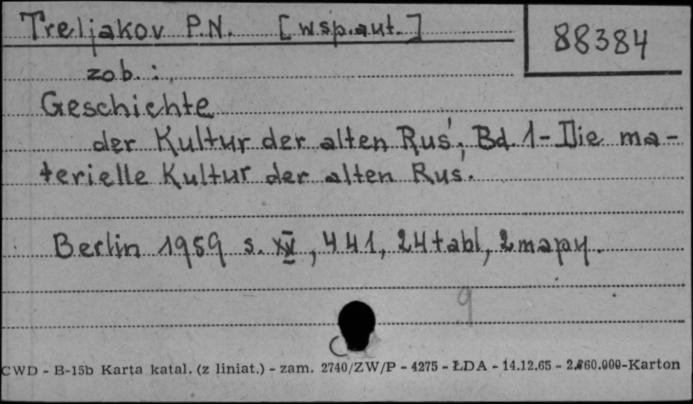 Treljakov P.N. [wsp.aut.]
88384
zob.:
Geschichte
der Kultur der alten Ruś; Bd. 1 - Die ma-
terielle Kultur der alten Ruś.
Berlin 1959 s. XV, 441, 24 tabl, 2 mapy.
9
CWD - B-15b Karta katal. (z liniat.) - zam. 2740/ZW/P - 4275 - ŁDA - 14.12.65 - 2.860.000-Karton